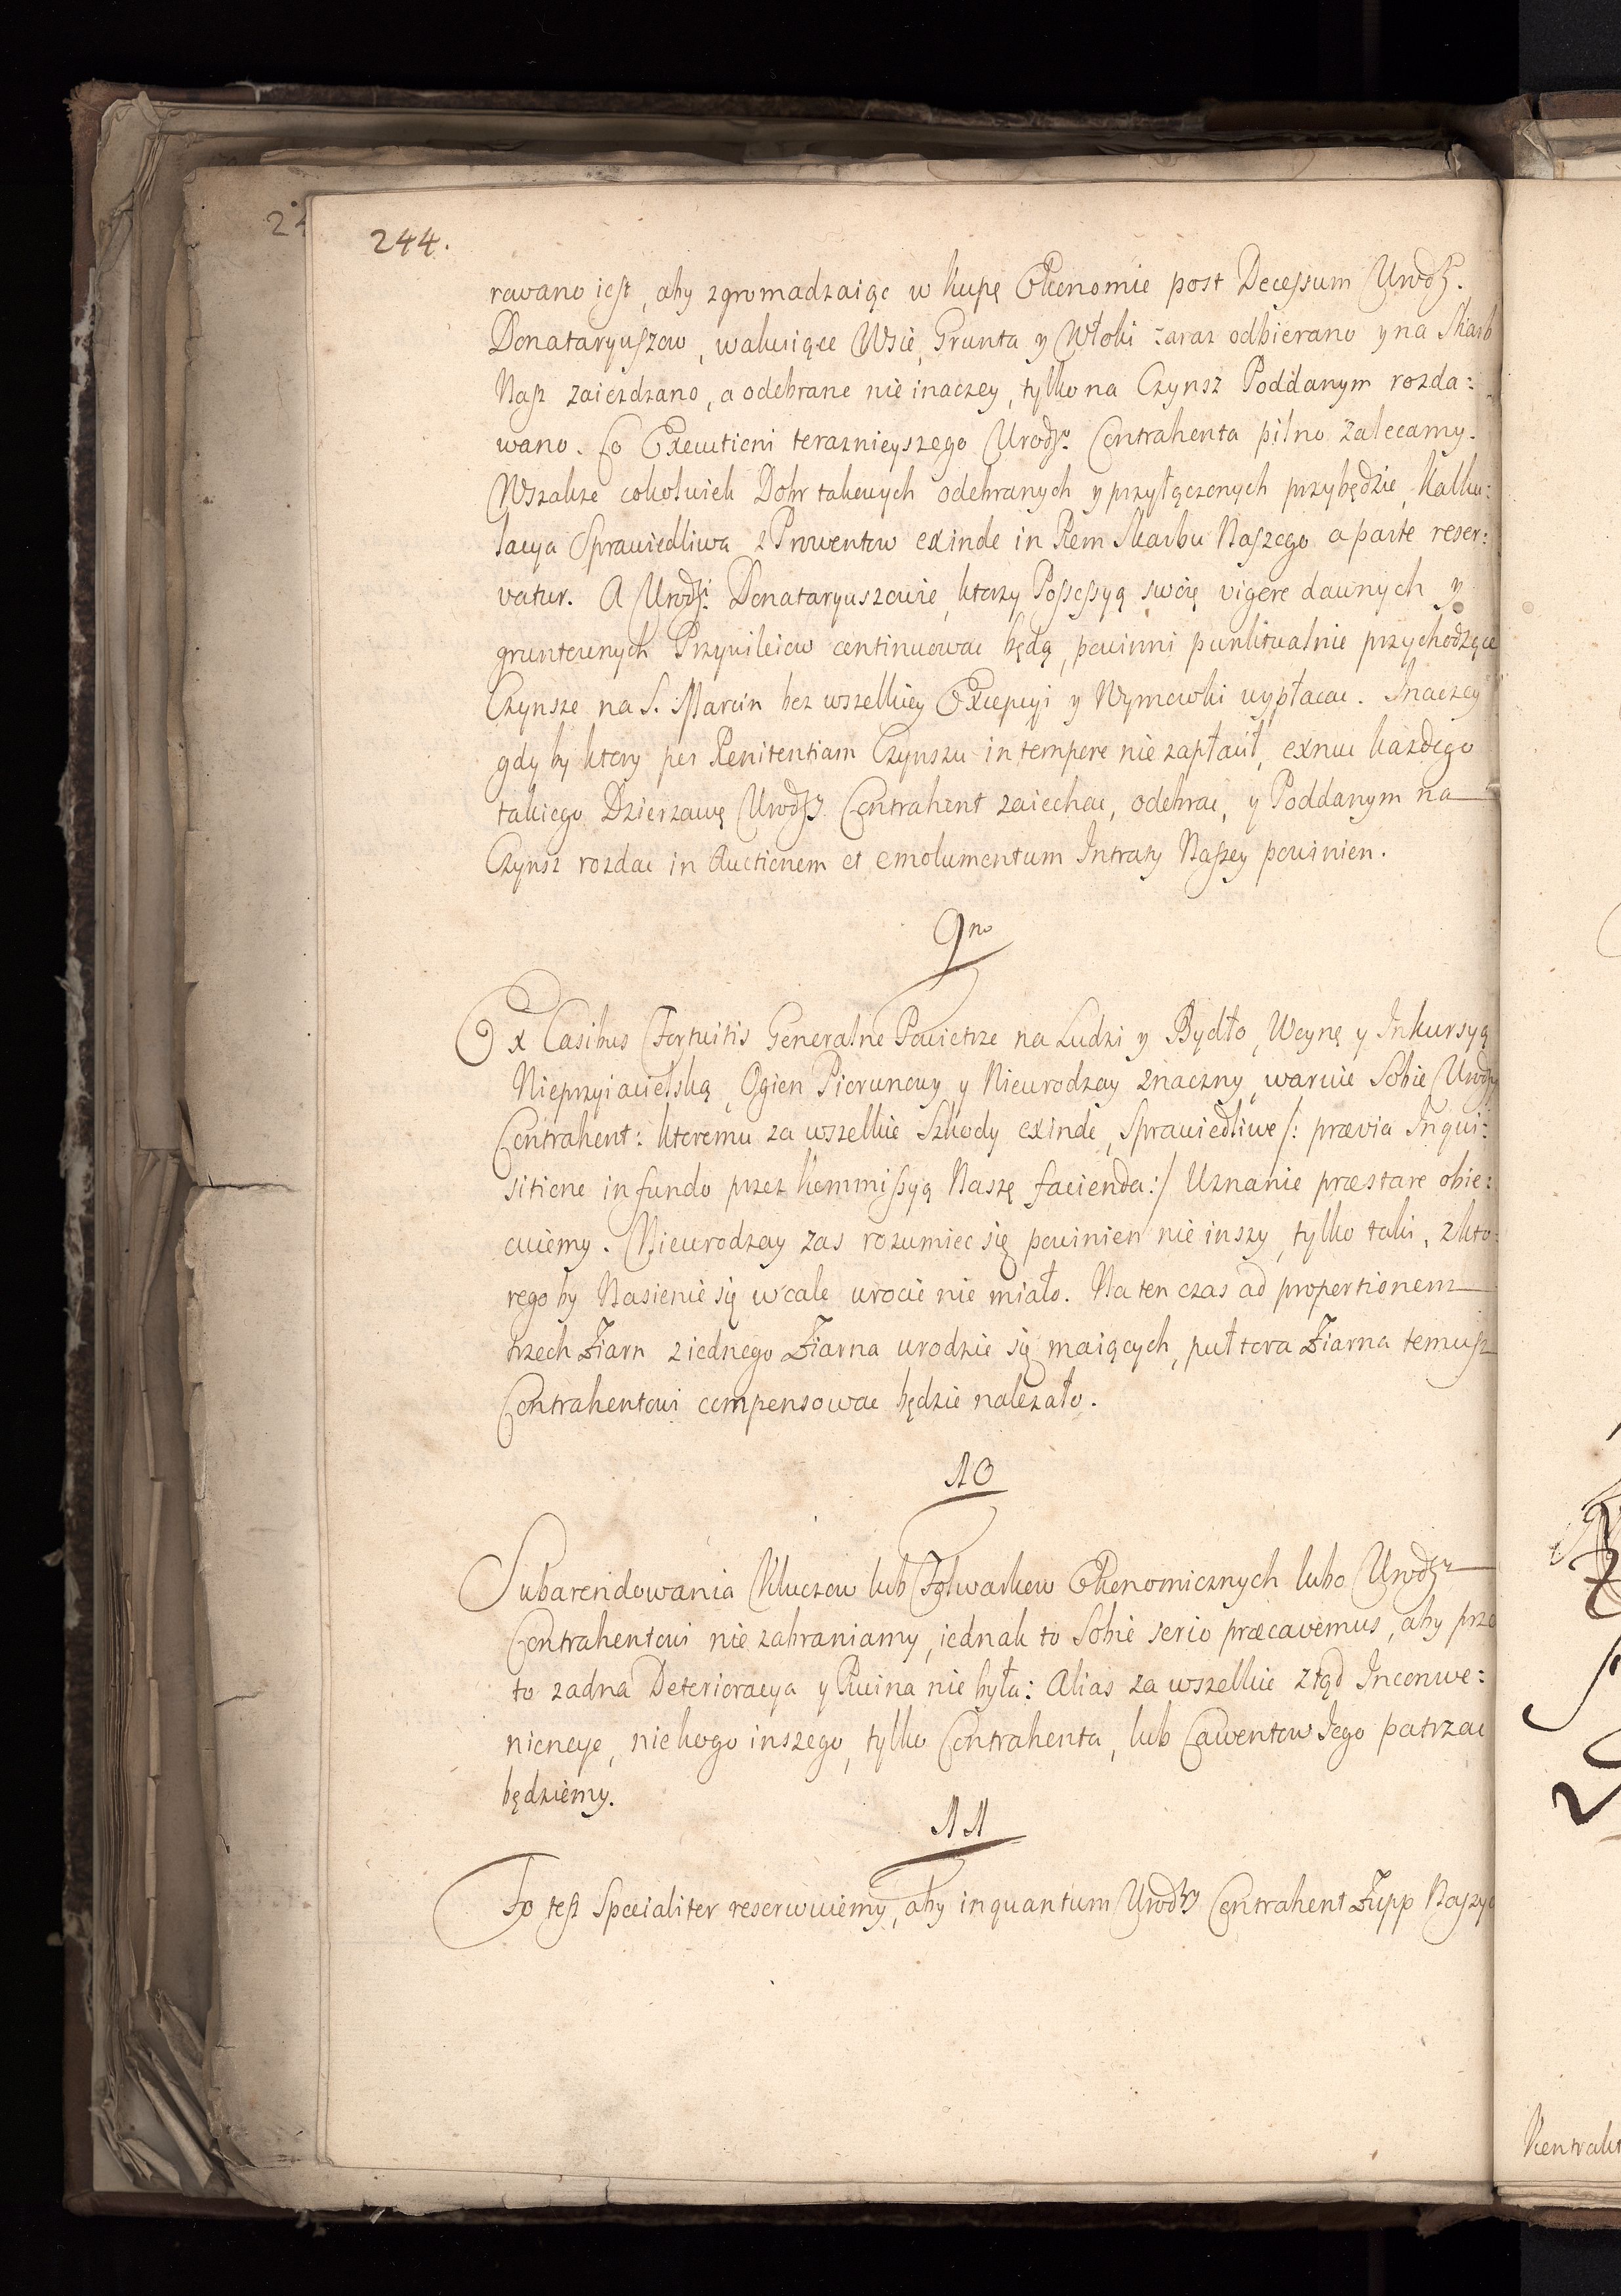 244.
rowano iest, aby zgromadzaiąc w kupę Ekonomie post Decessum Urodz.
Donataryuszow, wakuiące Wsie, Grunta y Włoki zaraz odbierano y na Skarb
Nasz zaiezdzano, a odebrane nie inaczey, tylko na Czynsz Poddanym rozda:
wano. Co Executioni teraznieyszego Urodzo. Contrahenta pilno zalecamy.
Wszakze cokolwiek Dobr takowych odebranych y przyłączonych przybędzie, Kalku:
lacya Sprawiedliwa z Prowentow exinde in Rem Skarbu Naszego a parte reser:
vatur. A Urodzi. Donataryuszowie, ktorzy Possessyą swoię vigore dawnych y
gruntownych Przywileiow continuowac będą, powinni punktualnie przychodzące
Czynsze na S. Marcin bez wszelkiey Excepcyi y Wymowki wypłacac. Inaczey
gdy by ktory per Renitentiam Czynszu in tempore nie zapłacił, exnuc kazdego
takiego Dzierzawę Urodzy Contrahent zaiechac, odebrac, y Poddanym na
Czynsz rozdac in Auctionem et emolumentum Intraty Naszey powinien.
9no
Ex Casibus Fortuitis Generalne Powietrze na Ludzi y Bydło, Woynę y Inkursyą
Nieprzyiacielską, Ogien Piorunowy, y Nieurodzay znaczny, waruie Sobie Urodzy
Contrahent: ktoremu za wszelkie Szkody exinde, Sprawiedliwe /: prævia Inqui:
sitione in fundo przez kommissyą Naszę facienda:/ Uznanie præstare obie:
cuiemy. Nieurodzay zas rozumiec się powinien nie inszy, tylko taki, z kto:
rego by Nasienie się wcale urocic nie miało. Na ten czas ad proportionem
trzech Ziarn z iednego Ziarna urodzic się maiących, pułtora Ziarna temusz
Contrahentowi compensowac będzie nalezało.
10
Subarendowania Kluczow lub Folwarkow Ekonomicznych lubo Urodz
Contrahentowi nie zabraniamy, iednak to Sobie serio præcavemus, aby prze
to zadna Deterioracya y Ruina nie była: Alias za wszelkie ztąd Inconwe:
niencye, nie kogo inszego, tylko Contrahenta, lub Cawentow Jego patrzac
będziemy.
11
To tesz Specialiter reserwuiemy, aby inquantum Urodzy Contrahent Zupp Naszyc
Kontrakt